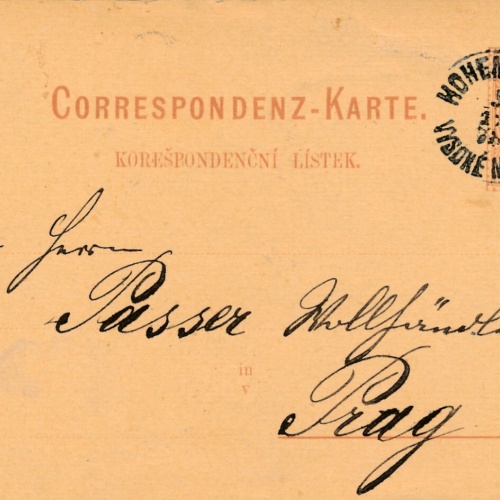 CORRESPONDENZ-KARTE.
KOREŠPONDENČNÍ LÍSTEK.
HOHEN
VYSOKÉ M
Herrn
Passer Wollhändle
in
v
Prag